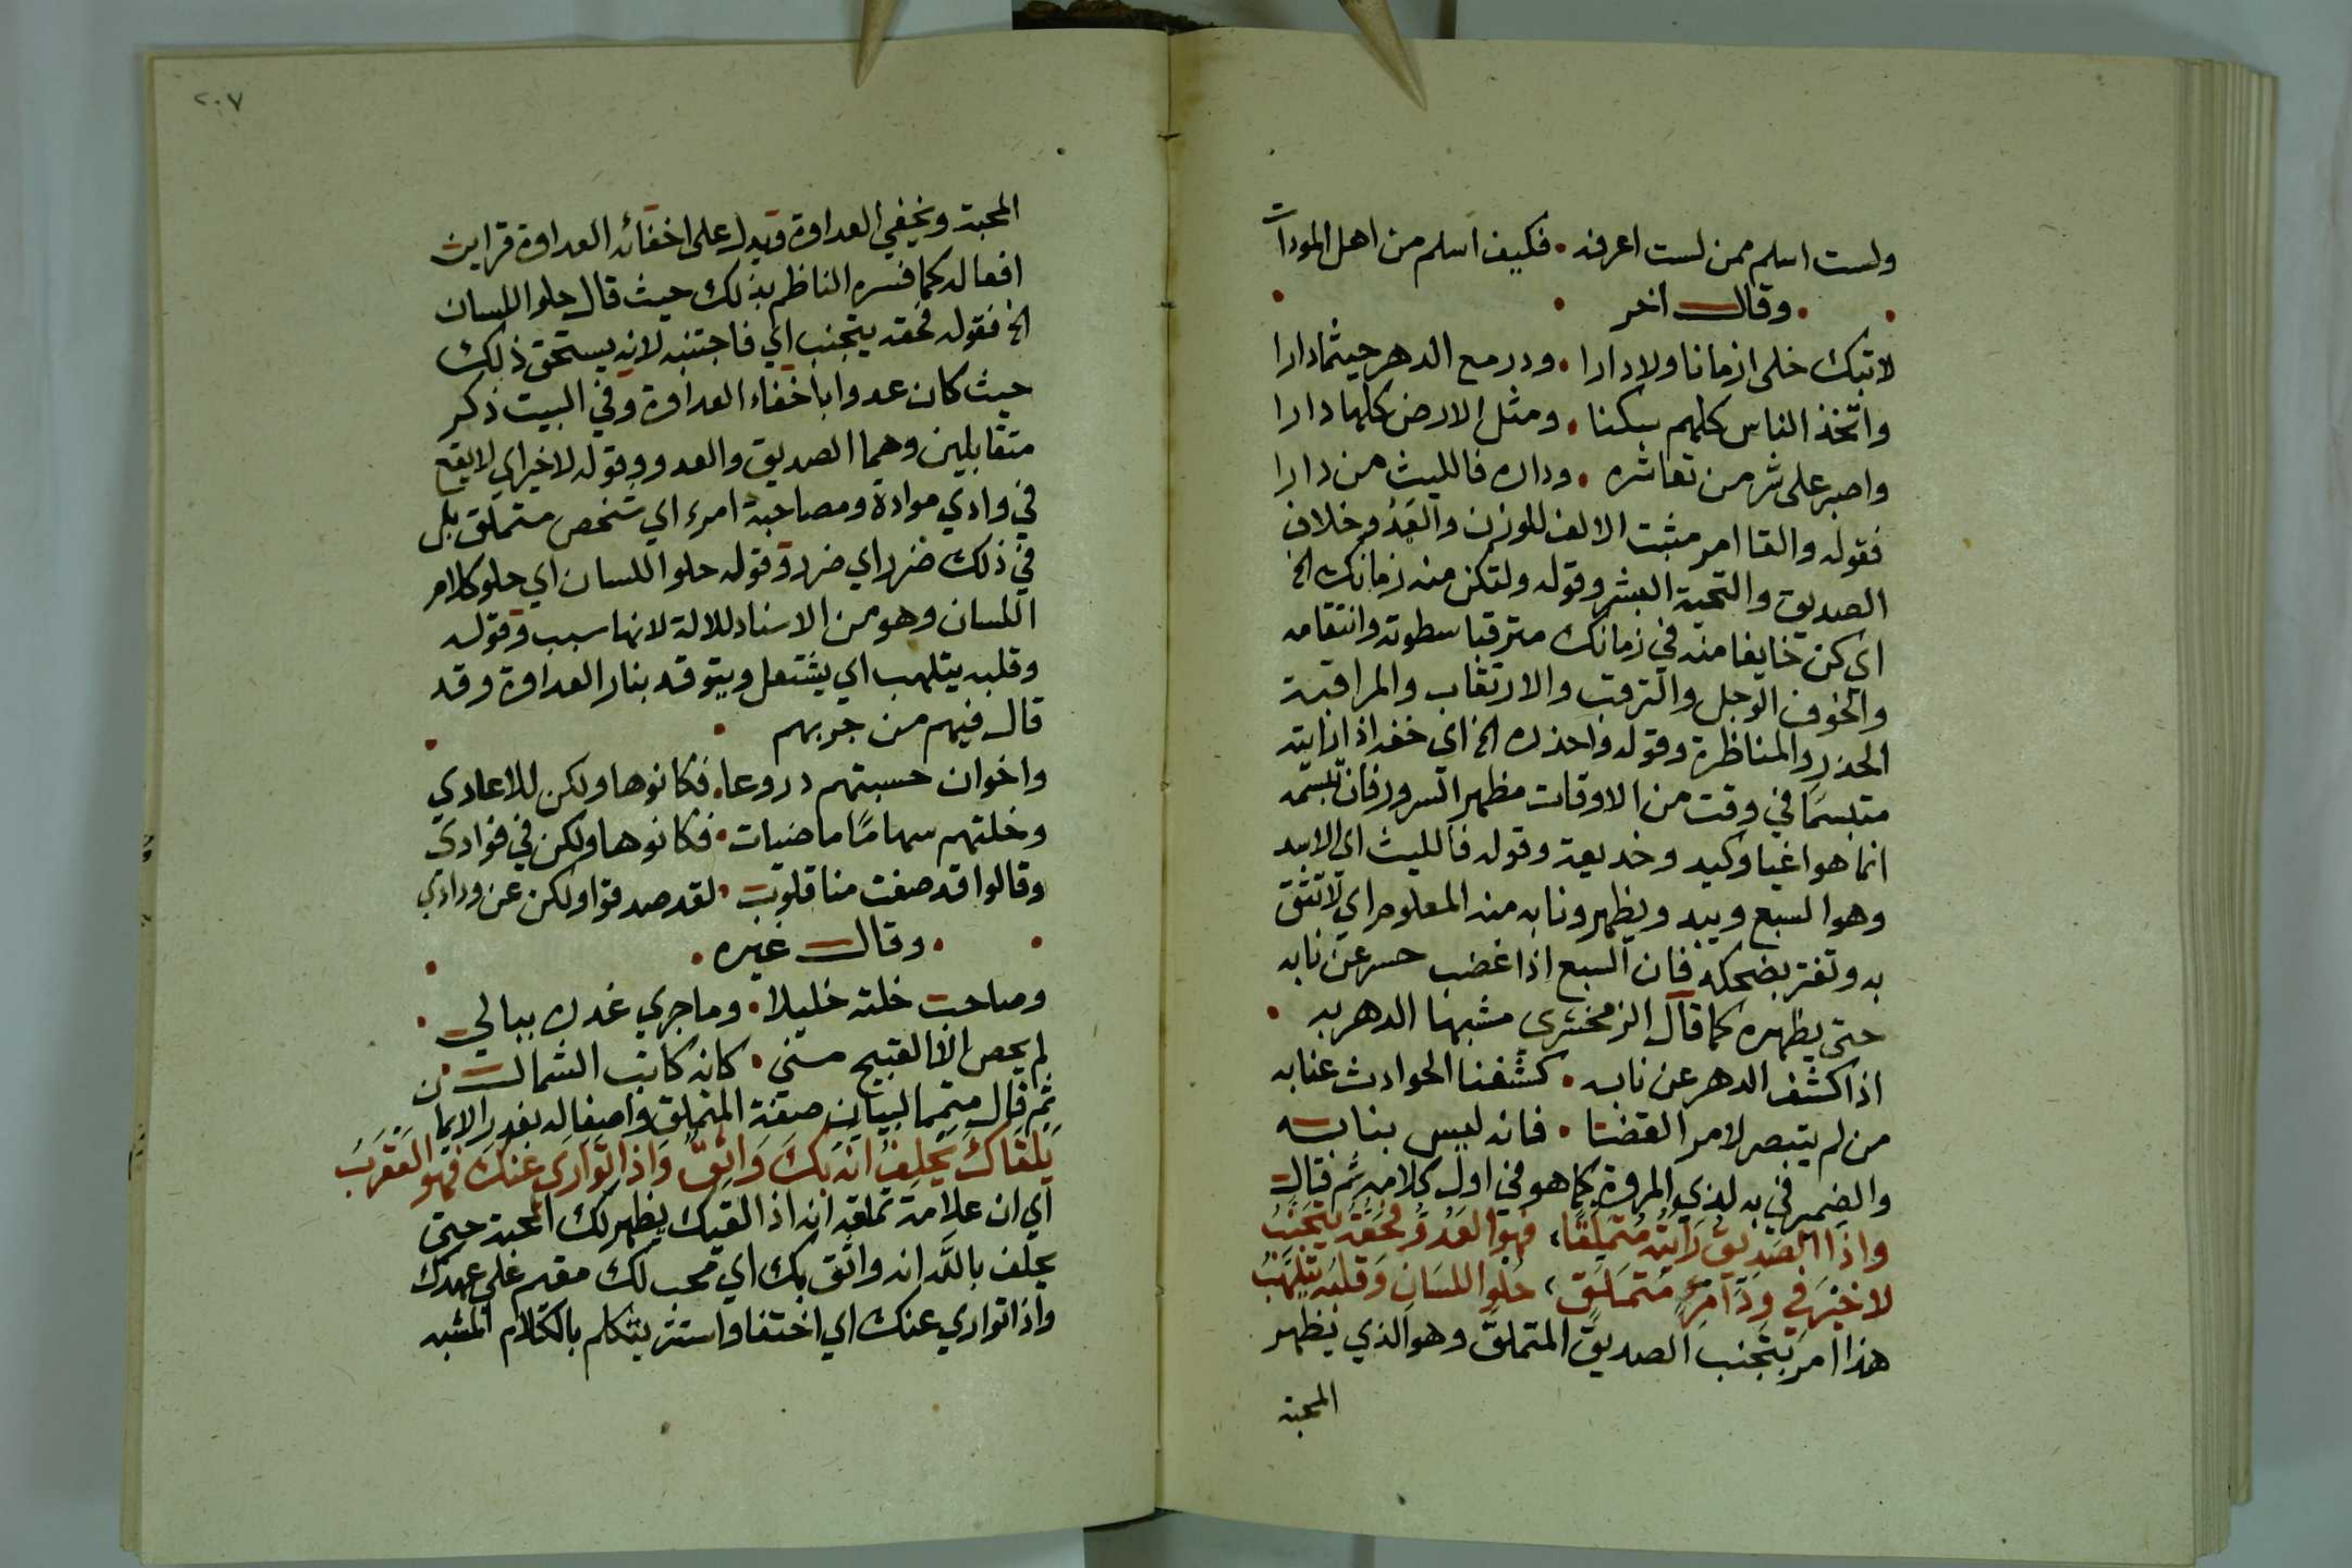 ولست اسلم ممن لست اعرفه • فكيف اسلم من اهل المودات
• وقال اخر •
لا تبك خلى ازمانا ولا دارا • ودر مع الدهر حيثما دارا
واتخذ الناس كلهم سكنا • ومثل الارض كلها دارا
واصبر على شر من تعاشره • وداره فالليث من دارا
فقوله والقا امر مثبت الالف للوزن والعدو خلاف
الصديق والتحية البشر وقوله ولتكن منه زمانك الخ
اي كن خايفا منه في زمانك مترقبا سطوته وانتقامه
والخوف الوجل والترقب والارتقاب والمراقبة
الحذر والمناظرة وقوله واحذره الخ اي خفه اذا رايته
متبسما في وقت من الاوقات مظهر السرور فان تبسمه
انما هو وكيد وخديعة وقوله فالليث اي الاسد
وهو السبع ويبد ويظهر ونابه منه المعلوم اي لا تثق
به وتغتر بضحكه فان السبع اذا غضب حسر عن نابه
حتى يظهره كما قال الزمخشري مشبها الدهر به •
اذا كشف الدهر عن نابه • كشفنا الحوادث عنا به
من لم يتبصر لامر القضا • فانه ليس بنا به
والضمير في به لذي المروة كما هو في اول كلامه ثم قال
واذا الصديق رايته متملقا، فهو العدو وحقه يتجنب
لا خير في ود امرئ متملق، حلو اللسان وقلبه يتلهب
هذا امر بتجنب الصديق المتملق وهو الذي يظهر
المحبة
٢٠٧
المحبة ويخفي العداوة ويدل على اخفائه العداوة قراين
افعاله كما فسره الناظم بذلك حيث قال حلو اللسان
الخ فقوله فحقه يتجنب اي فاجتنبه لانه يستحق ذلك
حيث كان عدوا باخفاء العداوة وفي البيت ذكر
متقابلين وهما الصديق والعدو وقوله لا خير اي لا يقع
في وادي موادة ومصاحبة امرء اي شخص متملق بل
في ذلك ضرر اي ضرر وقوله حلو اللسان اي حلو كلام
اللسان وهو من الاسناد للالة لانها سبب وقوله
وقلبه يتلهب اي يشتعل ويتوقد بنار العداوة وقد
قال فيهم من جربهم •
واخوان حسبتهم دروعا • فكانوها ولكن للاعادي
وخلتهم سهاما ماضيات • فكانوها ولكن في فوادي
وقالوا قد صفت منا قلوب • لقد صدقوا ولكن عن ودادي
• وقال غيره •
وصاحب خلته خليلا • وما جرى غدره ببالي •
لم يحص الا القبيح مني • كانه كاتب الشمال
ثم قال متمما لبيان صفة المتملق وافعاله بغدر الايمان
يلقاك يحلف انه بك واثق واذا توارى عنك فهو العقرب
اي ان علامة تملقه انه اذا لقيك يظهر لك المحبة حتى
يحلف بالله انه واثق بك اي محب لك مقيم على عهدك
واذا تواري عنك اي اختفا واستتر يتكلم بالكلام المشبه